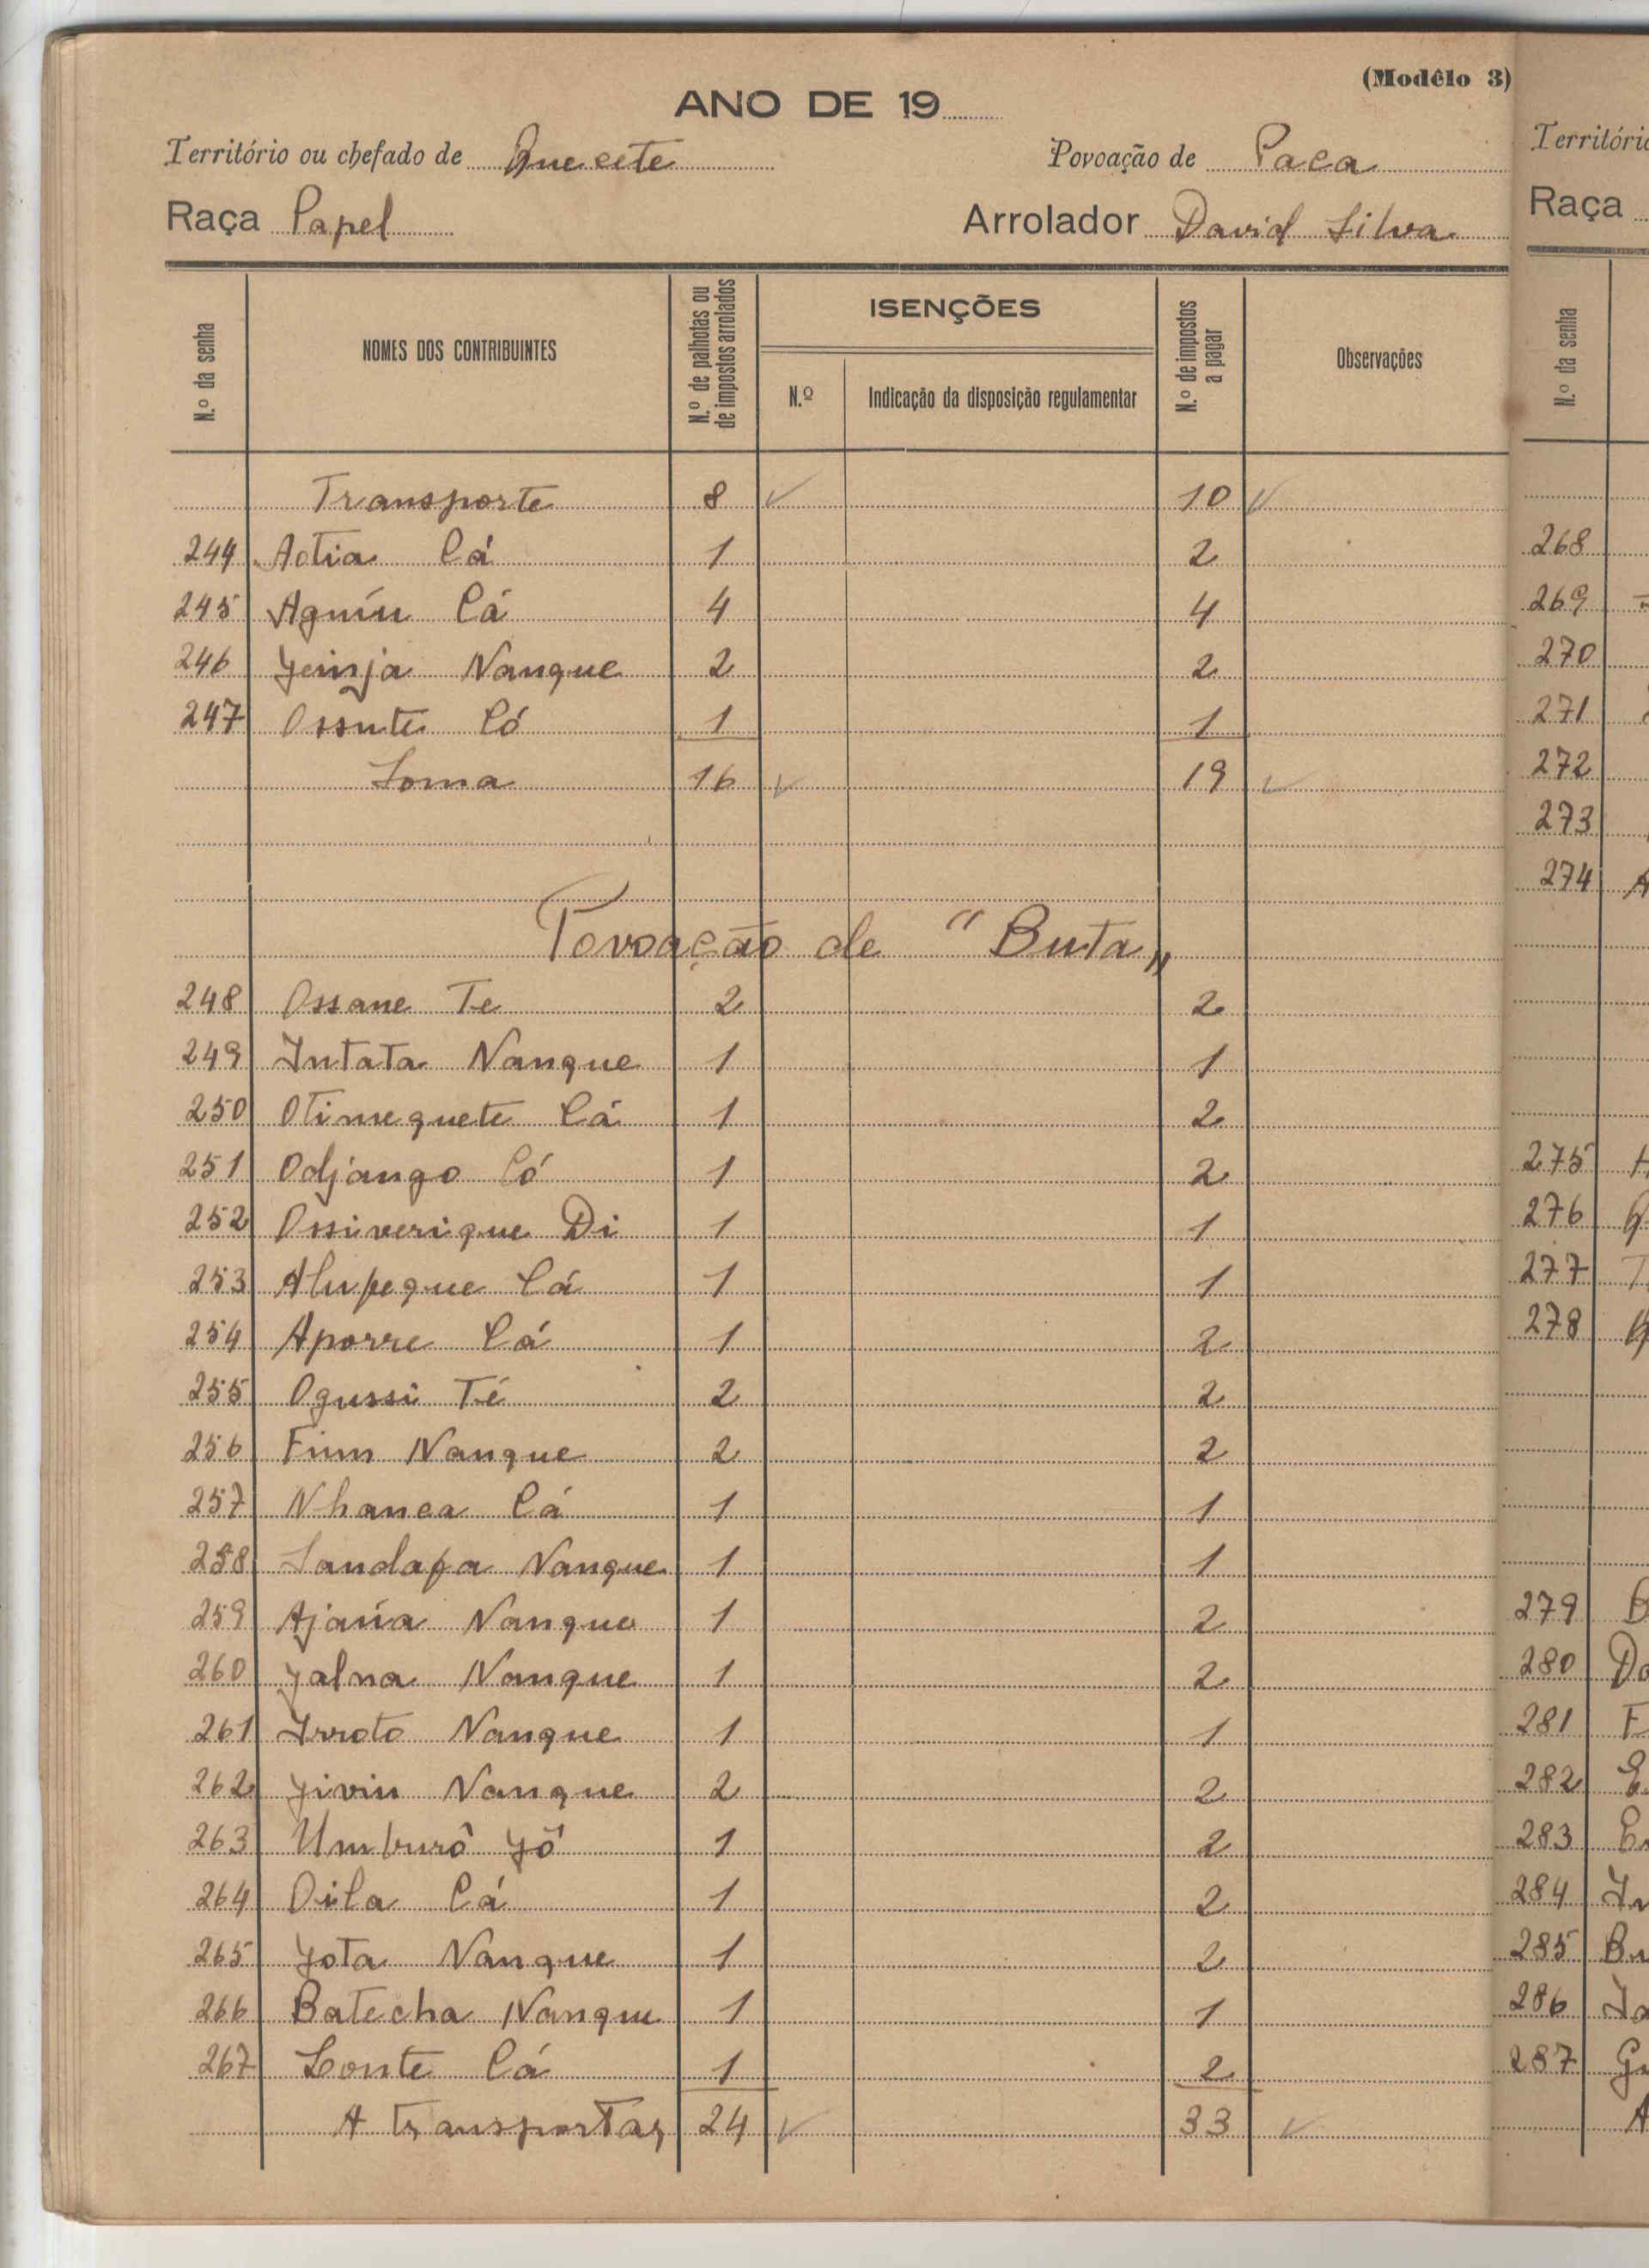 (Modêlo 3)
ANO DE 19
Território ou chefado de Quecete Povoação de Paca
Raça Papel Arrolador David Silva
N.º da senha NOMES DOS CONTRIBUINTES N.º de palhotas ou de impostos arrolados ISENÇÕES N.º Indicação da disposição regulamentar N.º de impostos a pagar Observações
Transporte 8 ✓ 10 ✓
244 Aotia Cá 1 2
245 Agníu Cá 4 4
246 Yeinja Nanque 2 2
247 Ossute Có 1 1
Soma 16 ✓ 19 ✓
Povoação de "Buta"
248 Ossane Te 2 2
249 Intata Nanque 1 1
250 Otimequete Cá 1 2
251 Odjango Có 1 2
252 Ossiverique Di 1 1
253 Alupeque Cá 1 1
254 Aporre Cá 1 2
255 Ogussi Té 2 2
256 Finn Nanque 2 2
257 Nhanca Cá 1 1
258 Sandafa Nanque 1 1
259 Ajaúa Nanque 1 2
260 Yalna Nanque 1 2
261 Irroto Nanque 1 1
262 Yivin Nanque 2 2
263 Umburô Yô 1 2
264 Oila Cá 1 2
265 Yota Nanque 1 2
266 Batecha Nanque 1 1
267 Conte Cá 1 2
A transportar 24 ✓ 33 ✓
Território
Raça
N.º da senha
268
269
270
271
272
273
274 A
275
276
277
278
279
280 Do
281 F
282
283
284
285 Bu
286
287
A